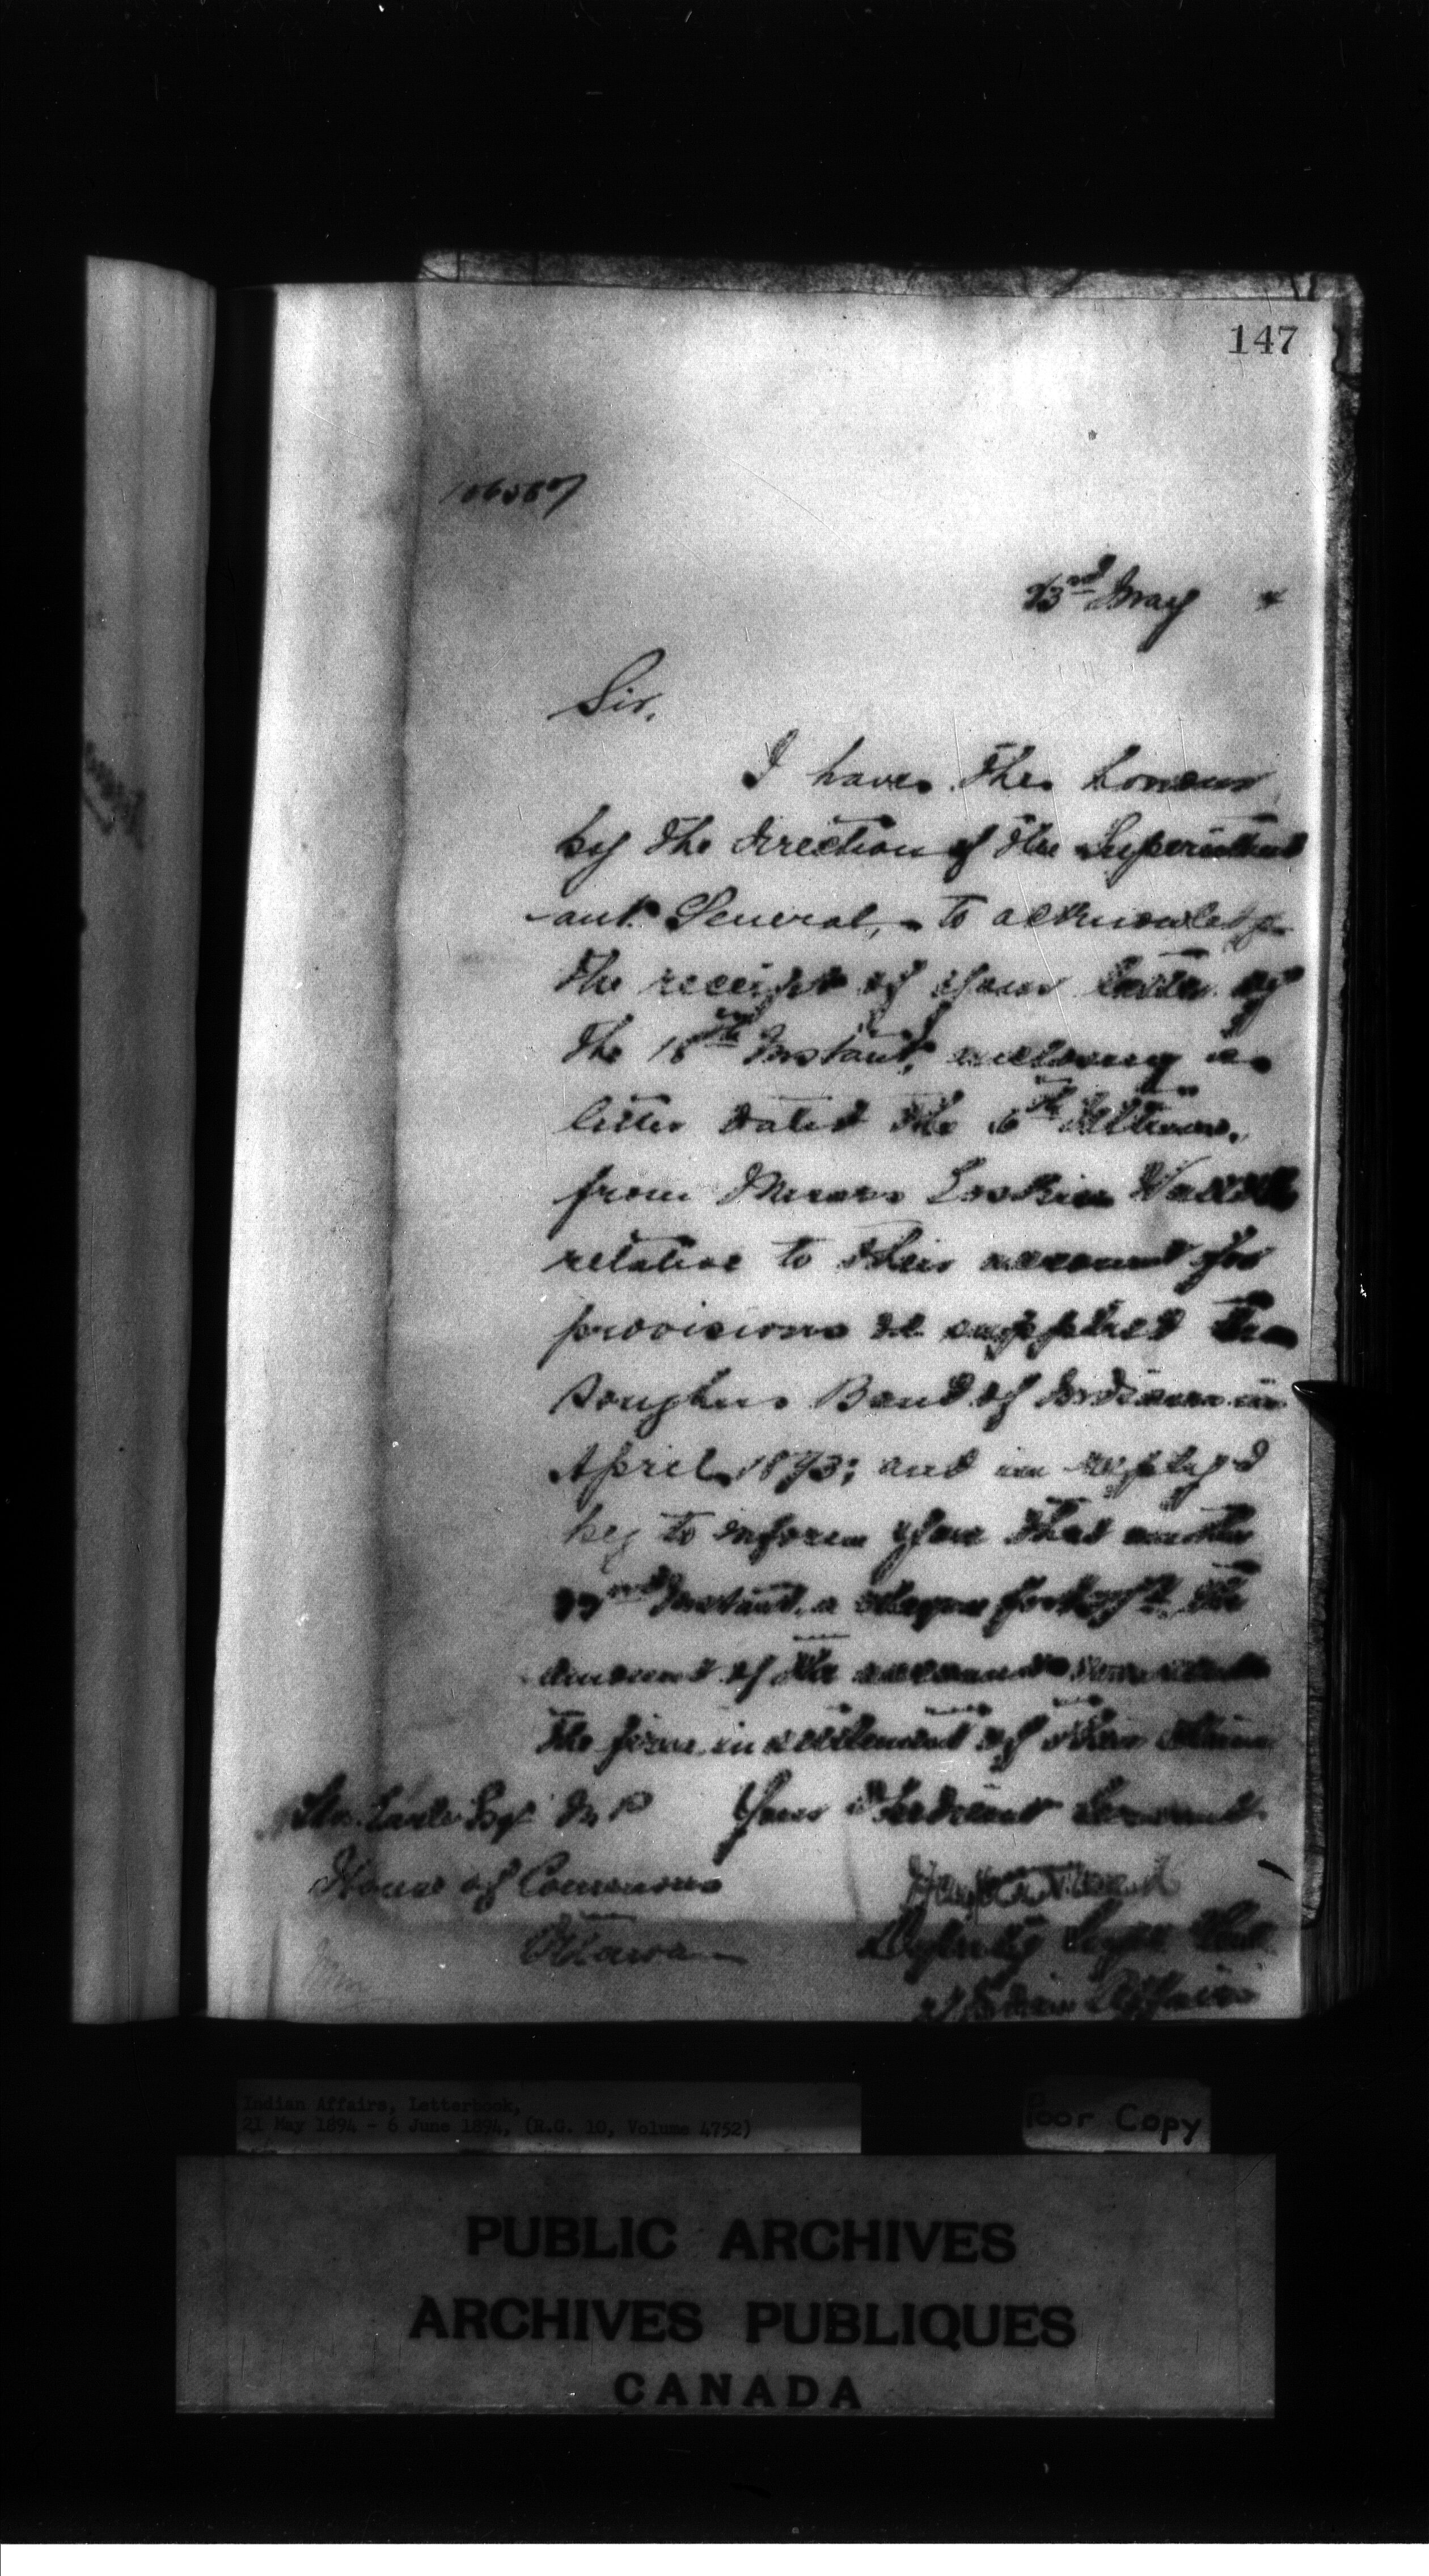 147
23rd May 4
Sir,
I have the honour
by the direction of the Superintend
-ent General, to acknowledge
the receipt of your letter of
the 18th Instant, enclosing a
letter dated the 6th Ultimo,
from Messrs Erskine Wall
relative to their account for
provisions &c supplied the
Douglas Band of Indians in
April 1893; and in reply I
beg to inform you that on the
22nd Instant, a cheque for the
amount of the account was sent
the firm in settlement of their claim
Your Obedient Servant
Thos. Earle Esq. M.P
House of Commons
Ottawa
Hayter Reed
Deputy Supt Genl
of Indian Affairs
Indian Affairs, Letterbook,
21 May 1894 - 6 June 1894, (R.G. 10, Volume 4752)
Poor Copy
PUBLIC ARCHIVES
ARCHIVES PUBLIQUES
CANADA